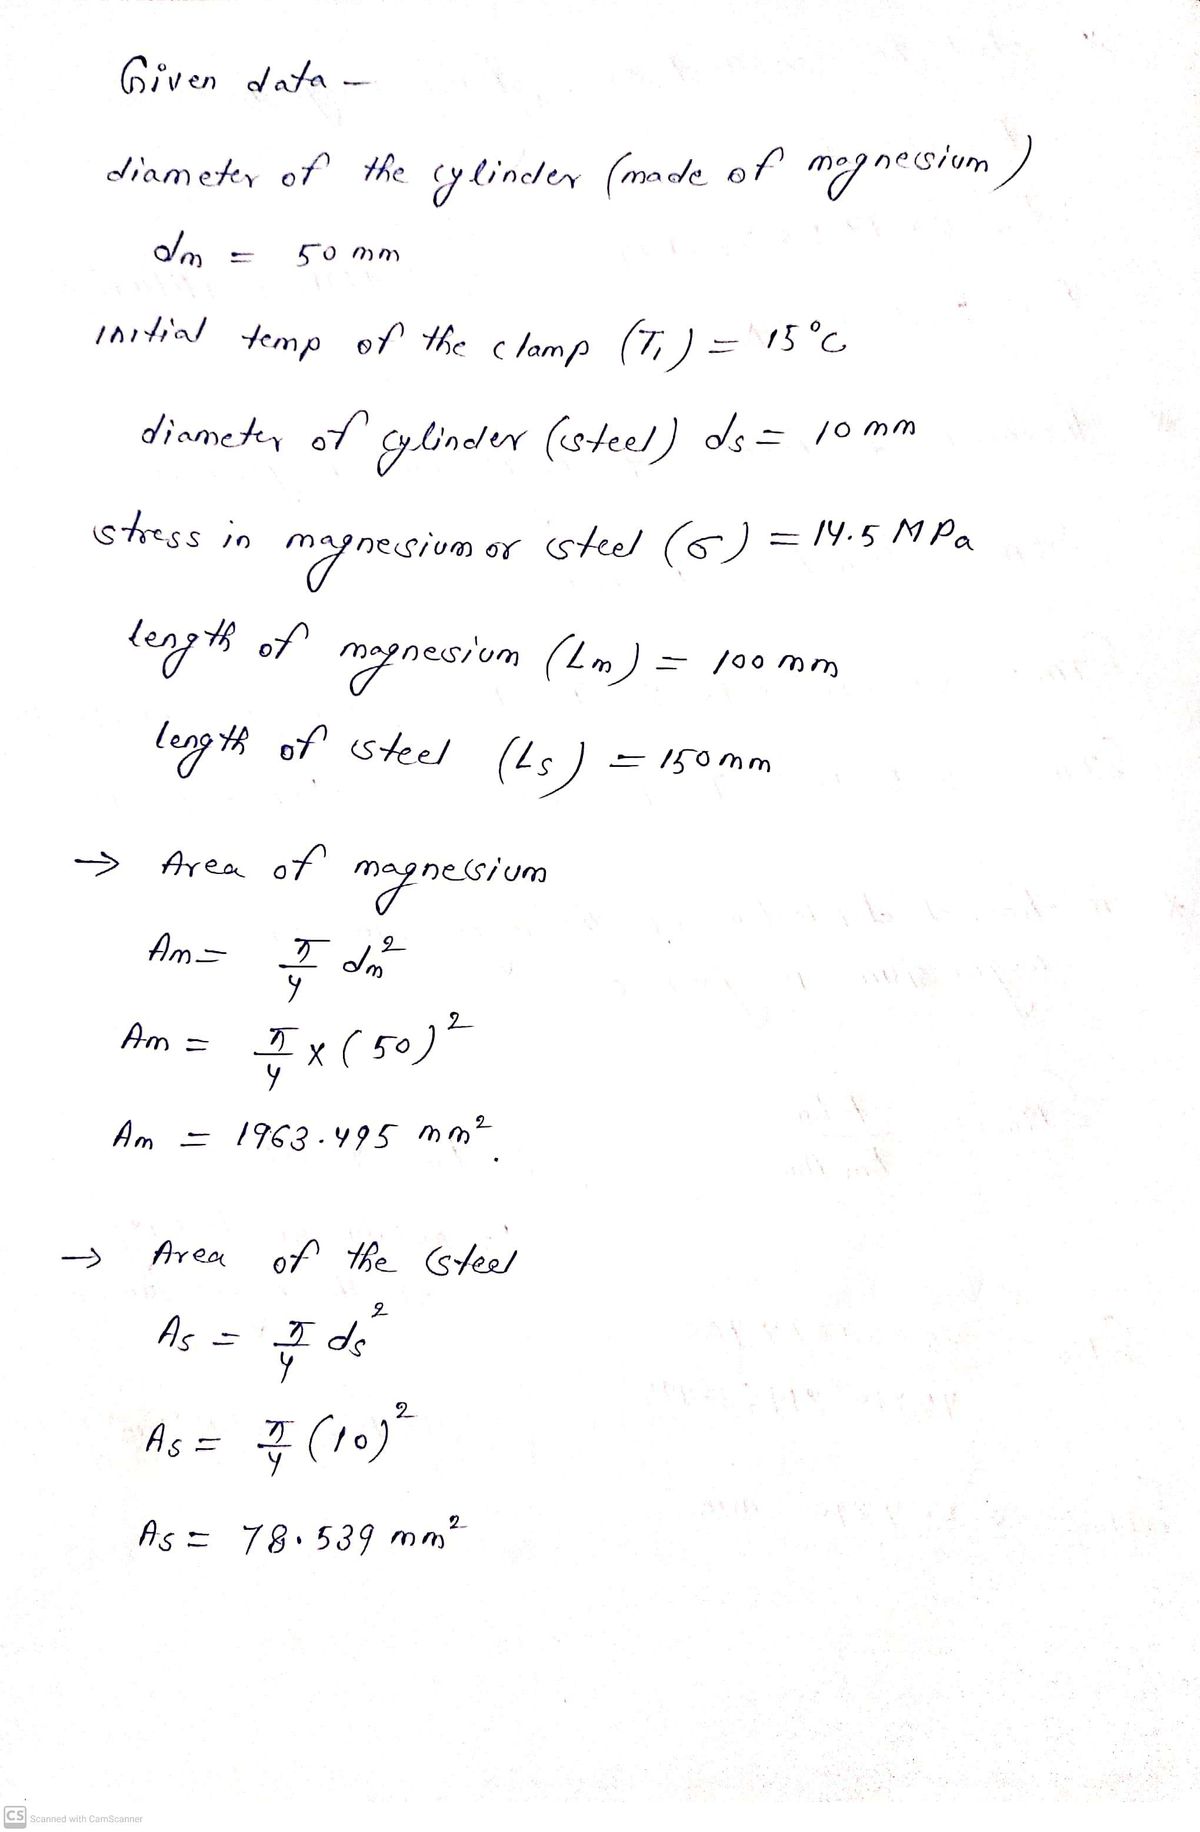 Given data -
diameter of the cylinder (made of magnesium)
dm = 50 mm
initial temp of the clamp (T₁) = 15°C
diameter of cylinder (steel) ds = 10 mm
stress in magnesium or steel (σ) = 14.5 MPa
length of magnesium (Lm) = 100 mm
length of steel (Ls) = 150 mm
→ Area of magnesium
Am = π/4 dm²
Am = π/4 × (50)²
Am = 1963.495 mm².
→ Area of the steel
As = π/4 ds²
As = π/4 (10)²
As = 78.539 mm²
CS Scanned with CamScanner